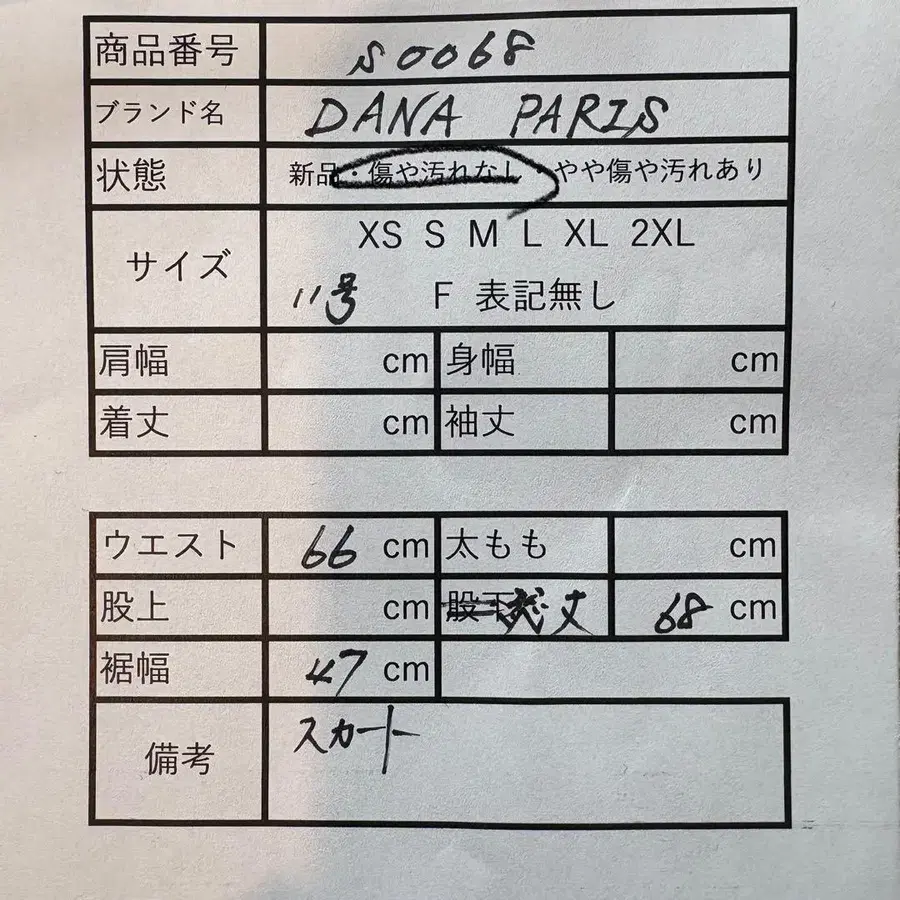 商品番号 S0068
ブランド名 DANA PARIS
状態 新品・傷や汚れなし・やや傷や汚れあり
サイズ XS S M L XL 2XL
11号 F 表記無し
肩幅 cm 身幅 cm
着丈 cm 袖丈 cm
ウエスト 66 cm 太もも cm
股上 cm 股下 総丈 68 cm
裾幅 47 cm
備考 スカート